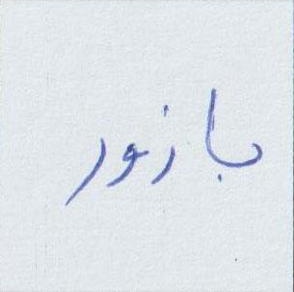 بازور